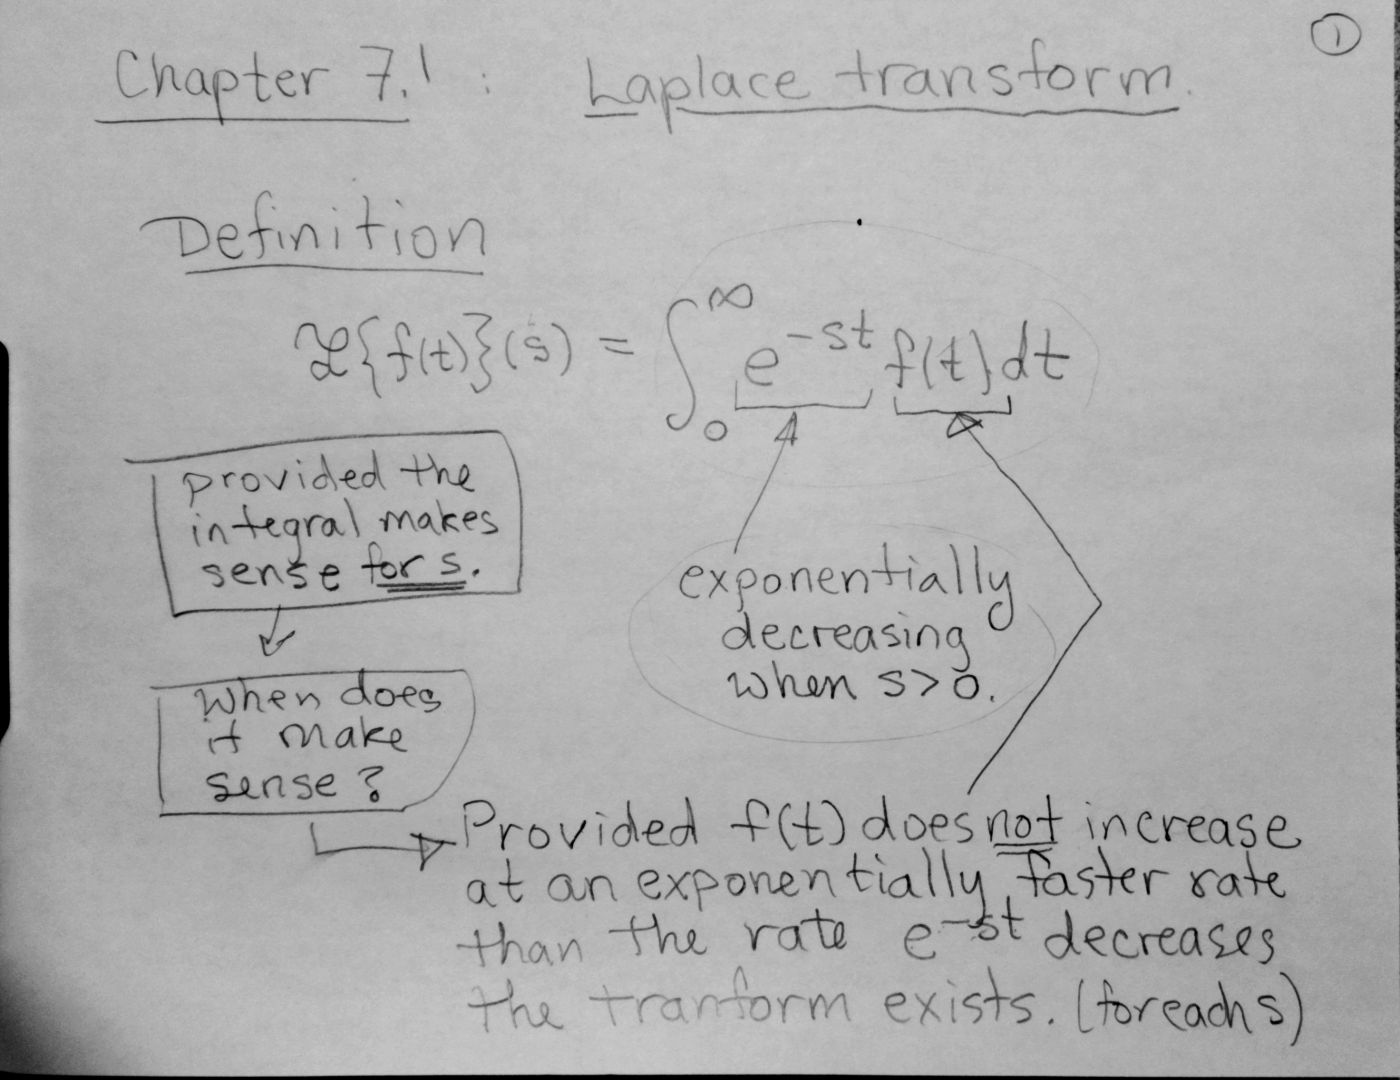 ①
Chapter 7.1 : Laplace transform.
Definition
ℒ{f(t)}(s) = ∫₀^∞ e^{-st} f(t) dt
provided the
integral makes
sense for s.
exponentially
decreasing
when s>0.
When does
it make
sense?
Provided f(t) does not increase
at an exponentially faster rate
than the rate e^{-st} decreases
the tranform exists. (for each s)